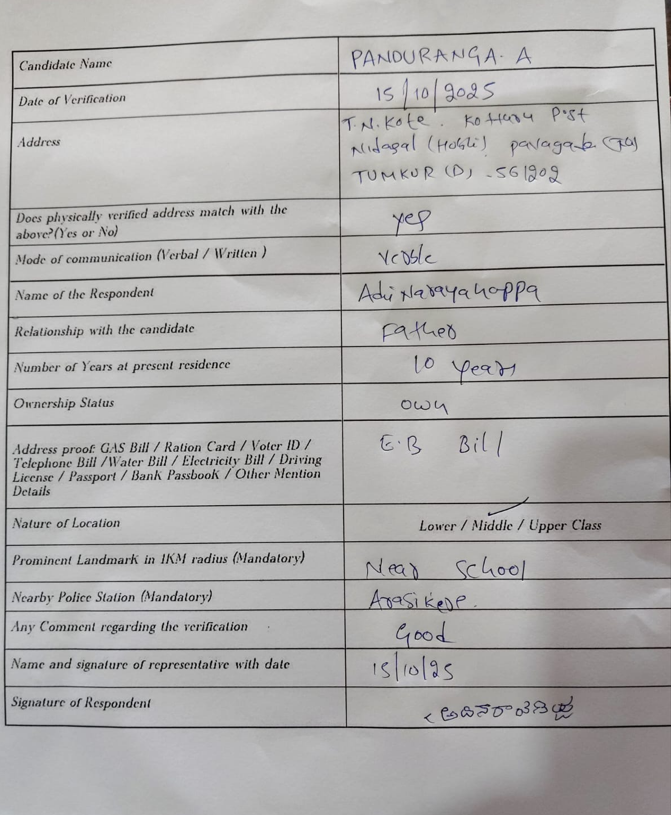 Candidate Name
PANDURANGA. A
Date of Verification
15/10/2025
Address
T.N.Kote. Kotturu Post
Nidagal (Hobli) pavagada (TQ)
TUMKUR (D) -561202
Does physically verified address match with the
above?(Yes or No)
yes
Mode of communication (Verbal / Written )
Verble
Name of the Respondent
Adi Narayanappa
Relationship with the candidate
Father
Number of Years at present residence
10 years
Ownership Status
own
Address proof: GAS Bill / Ration Card / Voter ID /
Telephone Bill /Water Bill / Electricity Bill / Driving
License / Passport / Bank Passbook / Other Mention
Details
E.B Bill
Nature of Location
Lower / Middle / Upper Class
Prominent Landmark in 1KM radius (Mandatory)
Near School
Nearby Police Station (Mandatory)
Arasikere.
Any Comment regarding the verification
Good
Name and signature of representative with date
15/10/25
Signature of Respondent